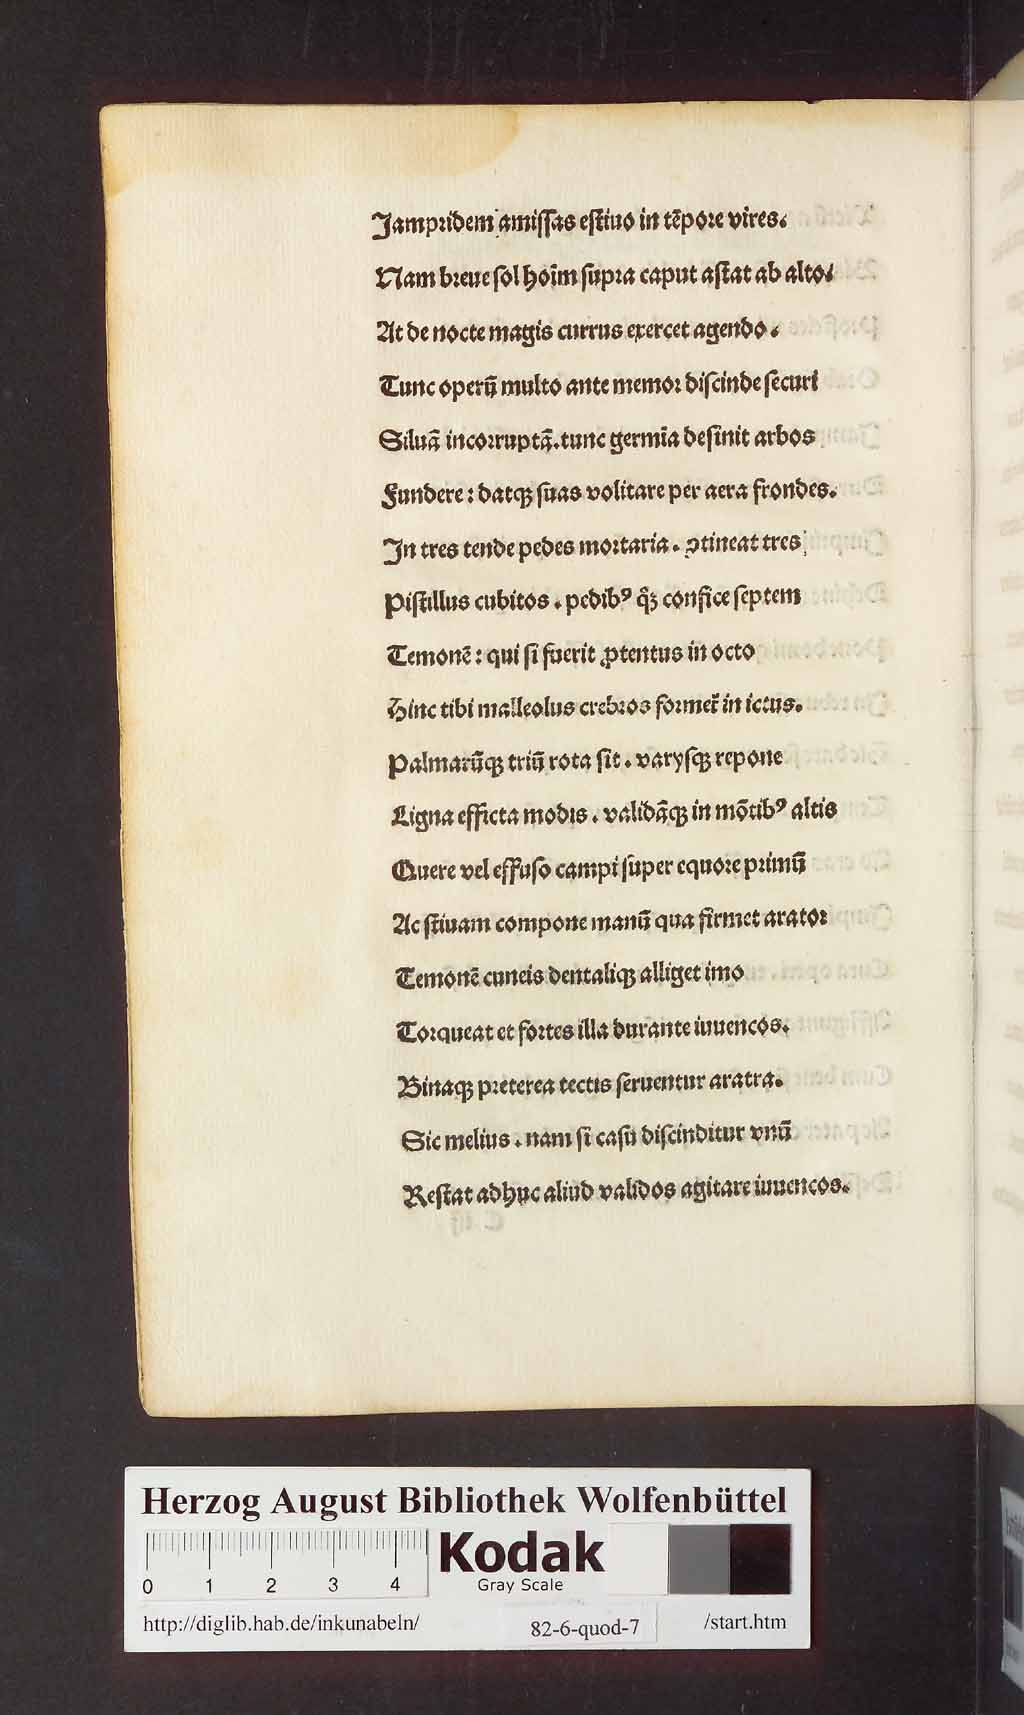 Jampridem amissas estiuo in tēpore vires.
Nam breue sol hoīm supra caput astat ab alto.
At de nocte magis currus exercet agendo.
Tunc operū multo ante memor discinde securi
Siluā incorruptā. tunc germīa desinit arbos
Fundere: datqꝫ suas volitare per aera frondes.
In tres tende pedes mortaria. ꝯtineat tres
Pistillus cubitos. pedibꝰ qͥꝫ confice septem
Temonē: qui si fuerit ꝓtentus in octo
Hinc tibi malleolus crebros formet᷑ in ictus.
Palmarūqꝫ triū rota sit. varysqꝫ repone
Ligna efficta modis. validāqꝫ in mōtibꝰ altis
Quere vel effuso campi super equore primū
Ac stiuam compone manū qua firmet arator
Temonē cuneis dentaliqꝫ alliget imo
Torqueat et fortes illa durante iuuencos.
Binaqꝫ preterea tectis seruentur aratra.
Sic melius. nam si casu discinditur vnū
Restat adhuc aliud validos agitare iuuencos.
Herzog August Bibliothek Wolfenbüttel
Kodak
Gray Scale
0 1 2 3 4
http://diglib.hab.de/inkunabeln/ 82-6-quod-7 /start.htm